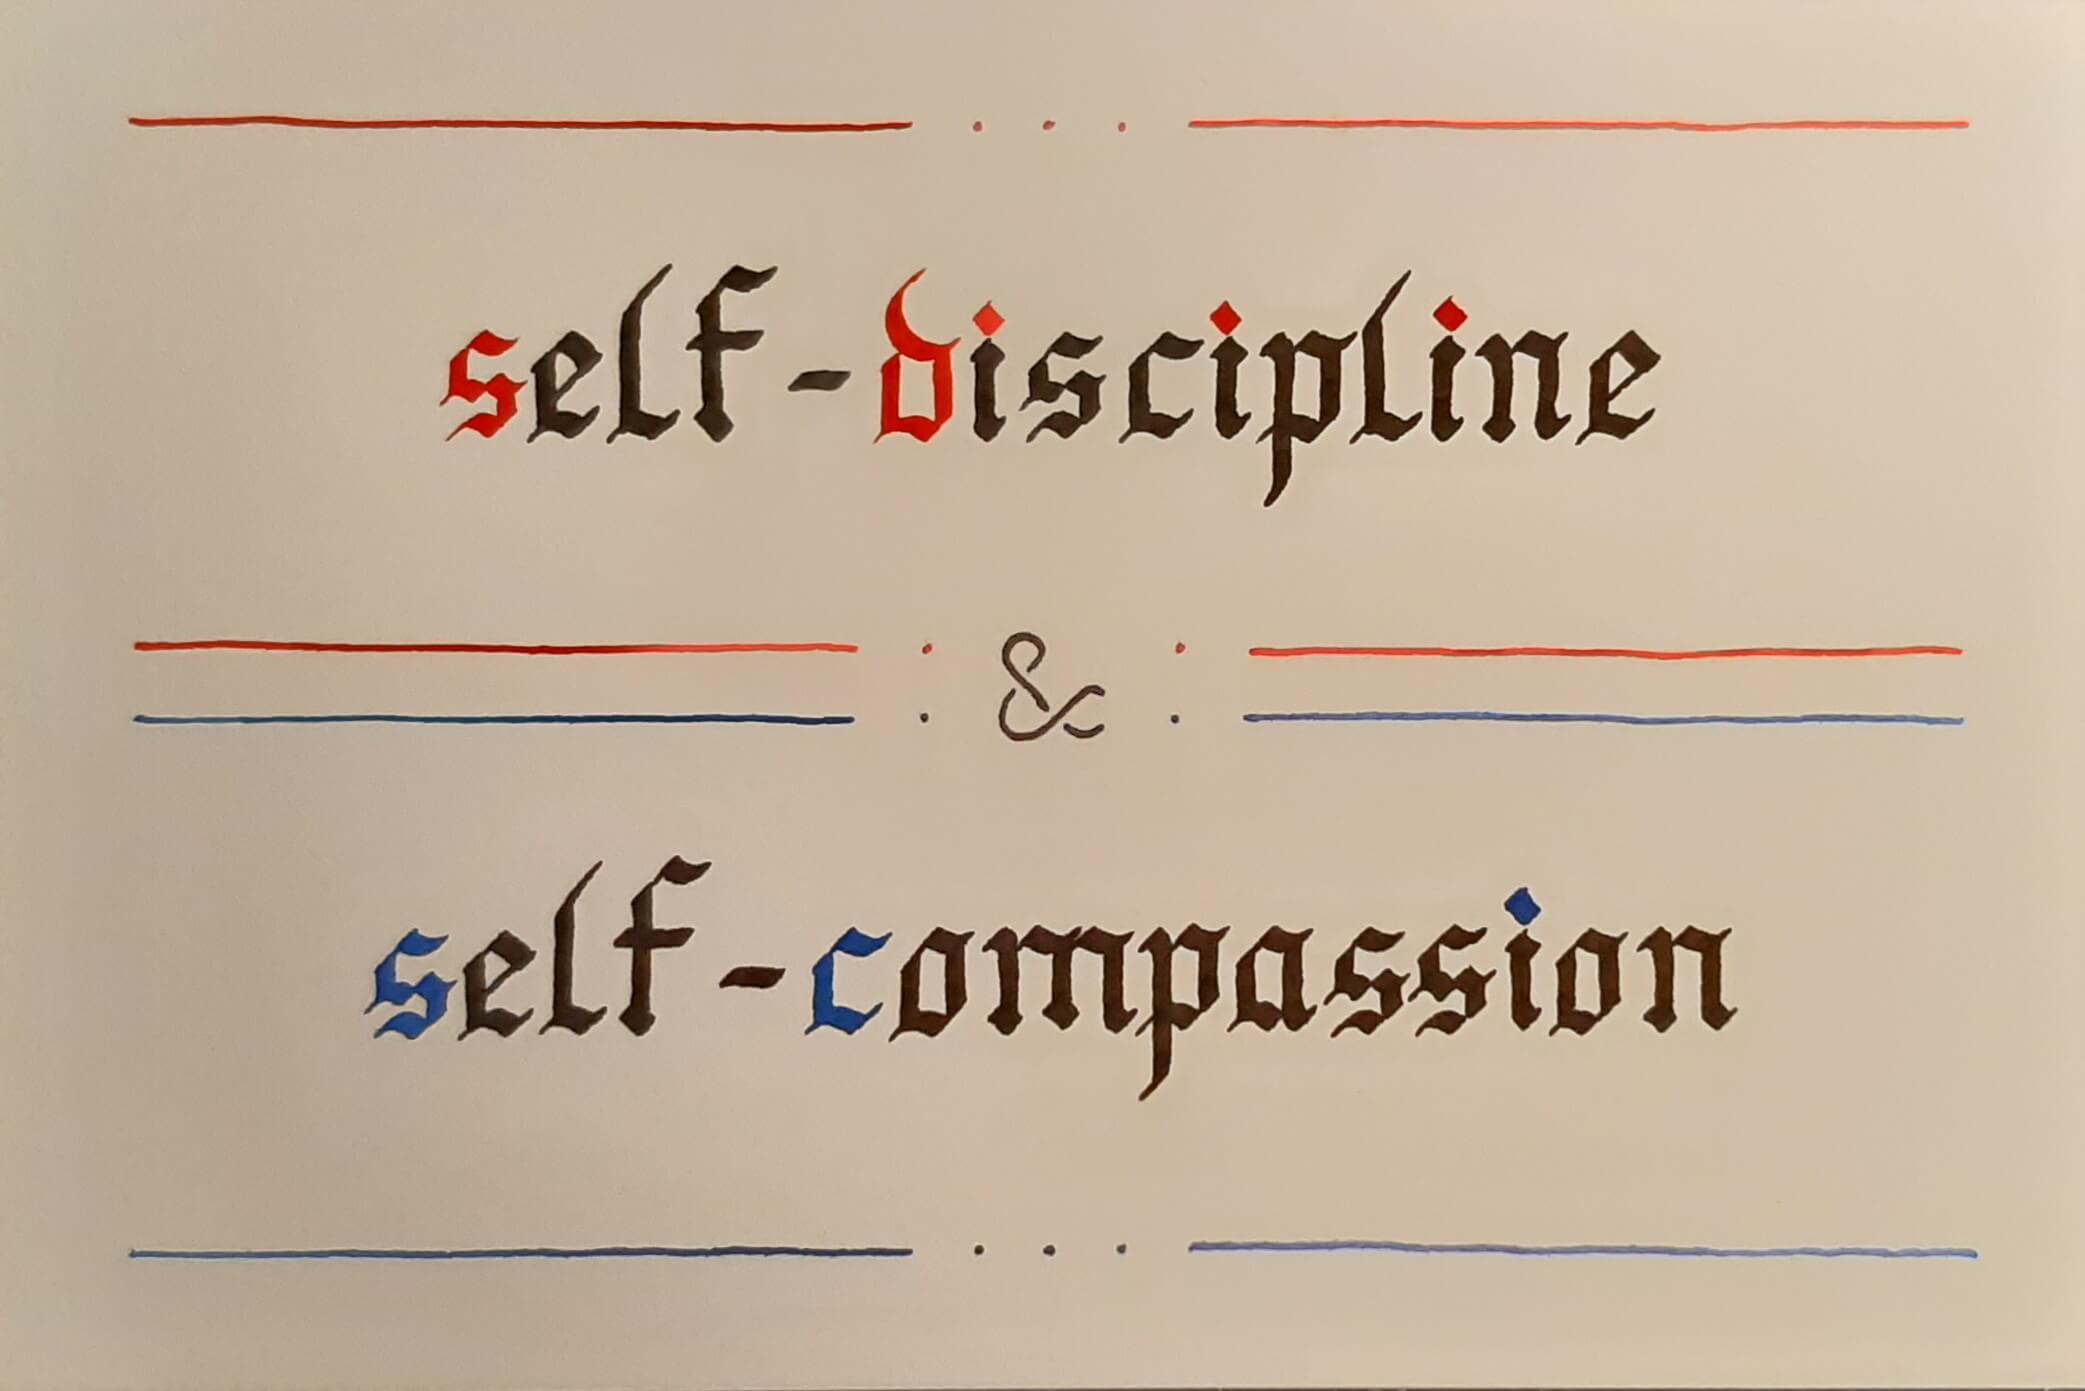 self-discipline
&
self-compassion